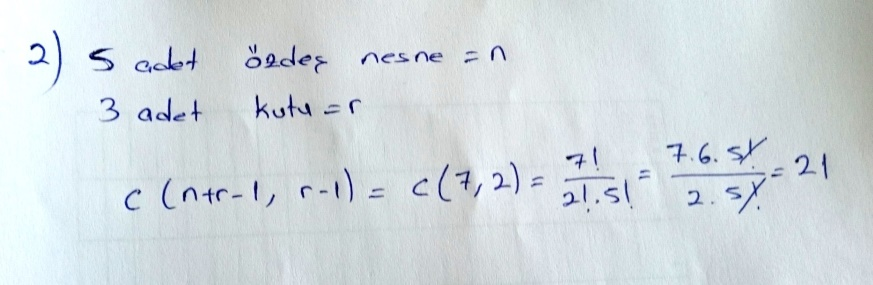 2) 5 adet özdeş nesne = n
3 adet kutu = r
c (n+r-1, r-1) = c(7,2) = 7! / 2!.5! = 7.6.5! / 2.5! = 21